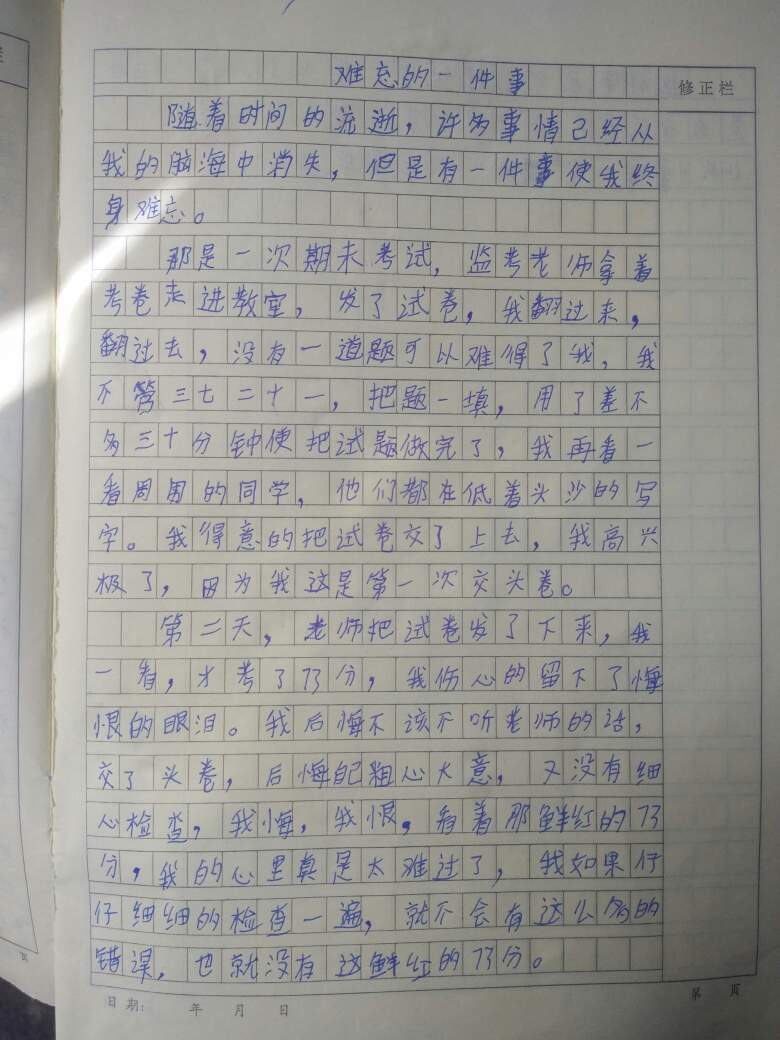 难忘的一件事
修正栏
随着时间的流逝，许多事情已经从
我的脑海中消失，但是有一件事使我终
身难忘。
那是一次期末考试，监考老师拿着
考卷走进教室，发了试卷，我翻过来，
翻过去，没有一道题可以难得了我，我
不管三七二十一，把题一填，用了差不
多三十分钟便把试题做完了，我再看一
看周围的同学，他们都在低着头沙的写
字。我得意的把试卷交了上去，我高兴
极了，因为我这是第一次交头卷。
第二天，老师把试卷发了下来，我
一看，才考了73分，我伤心的留下了悔
恨的眼泪。我后悔不该不听老师的话，
交了头卷，后悔自己粗心大意，又没有细
心检查，我悔，我恨，看着那鲜红的73
分，我的心里真是太难过了，我如果仔
仔细细的检查一遍，就不会有这么多的
错误，也就没有这鲜红的73分。
日期： 年 月 日
第 页